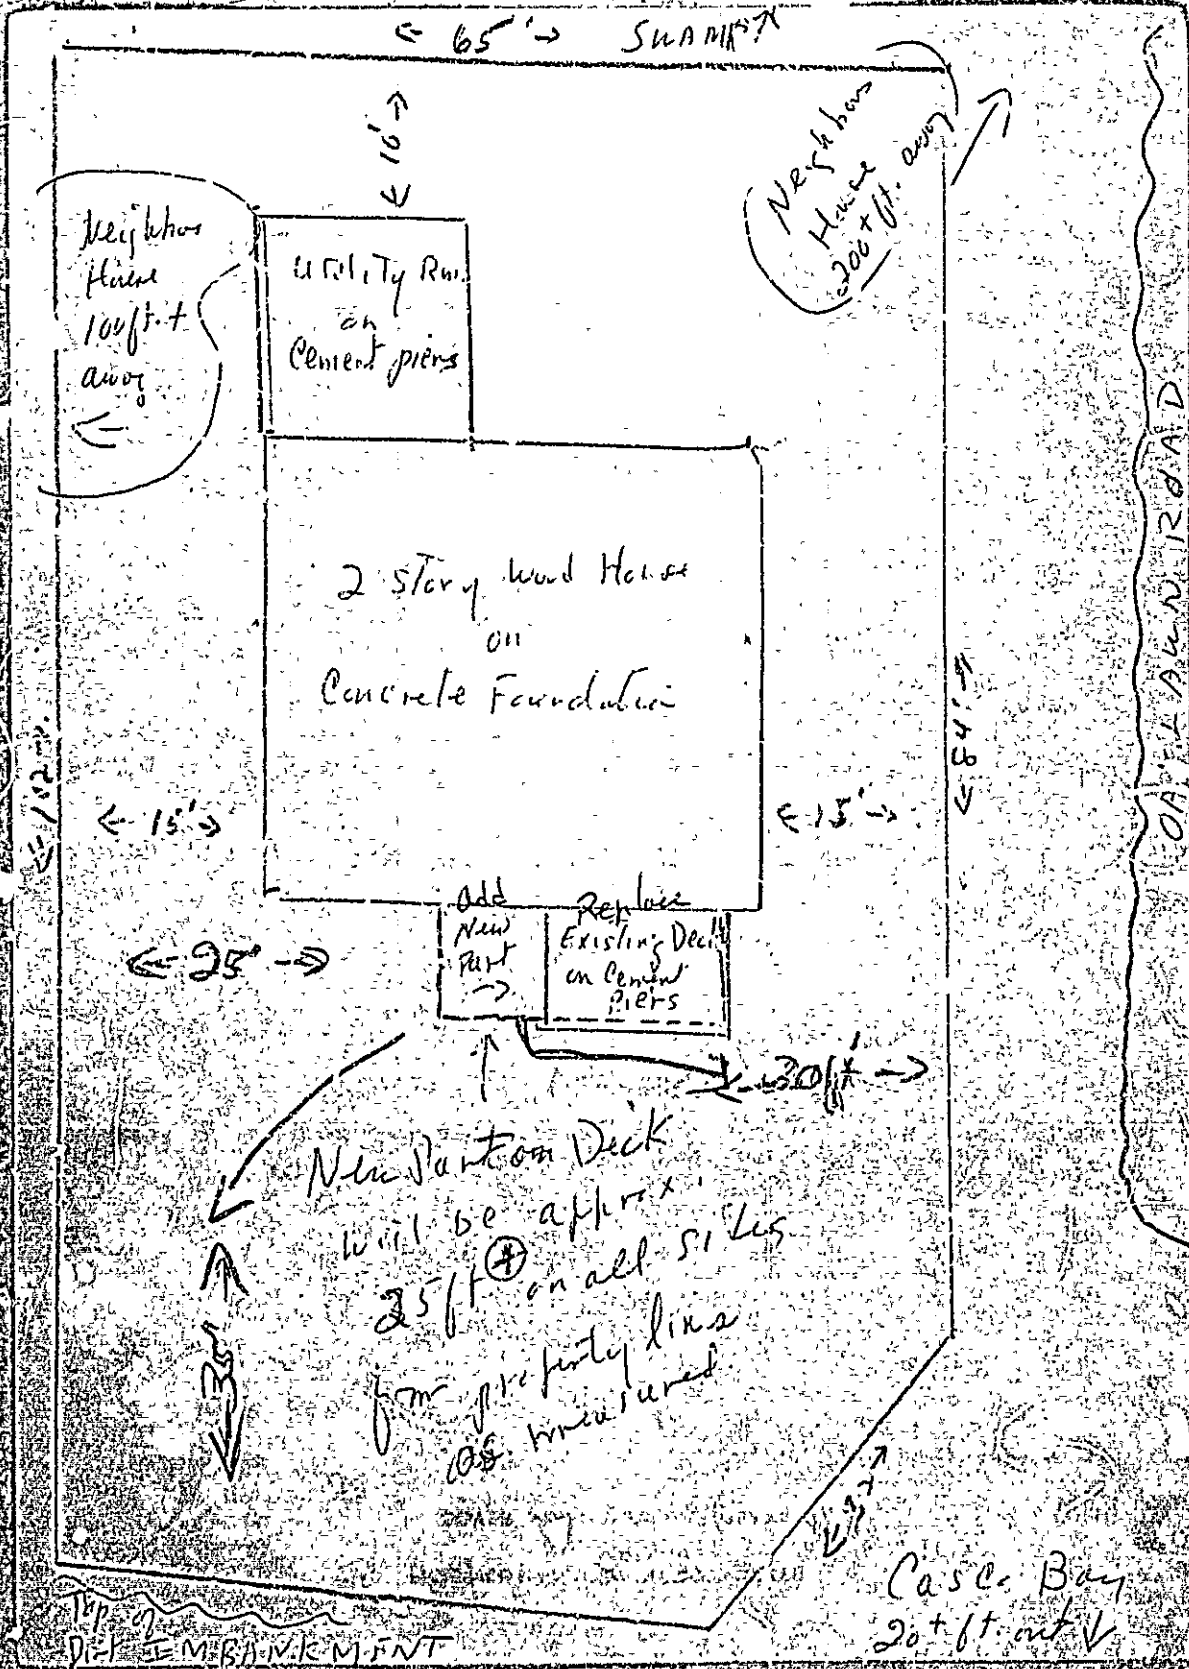 ← 65' → SWAMP
← 10' →
Neighbors
House
200+ ft. away
Neighbors
House
100 ft. +
away
Utility Rm.
on
Cement piers
2 story Wood House
on
Concrete Foundation
← 15' →
← 15' →
← 64' →
OAKLAWN ROAD
add
New
Part
Replace
Existing Deck
on Cement
Piers
← 25' →
30 ft →
New Part on Deck
will be approx.
25 ft on all sides
from property lines
as measured
35'
Casco Bay
20+ ft. out
Top of
Dirt IMBANKMENT